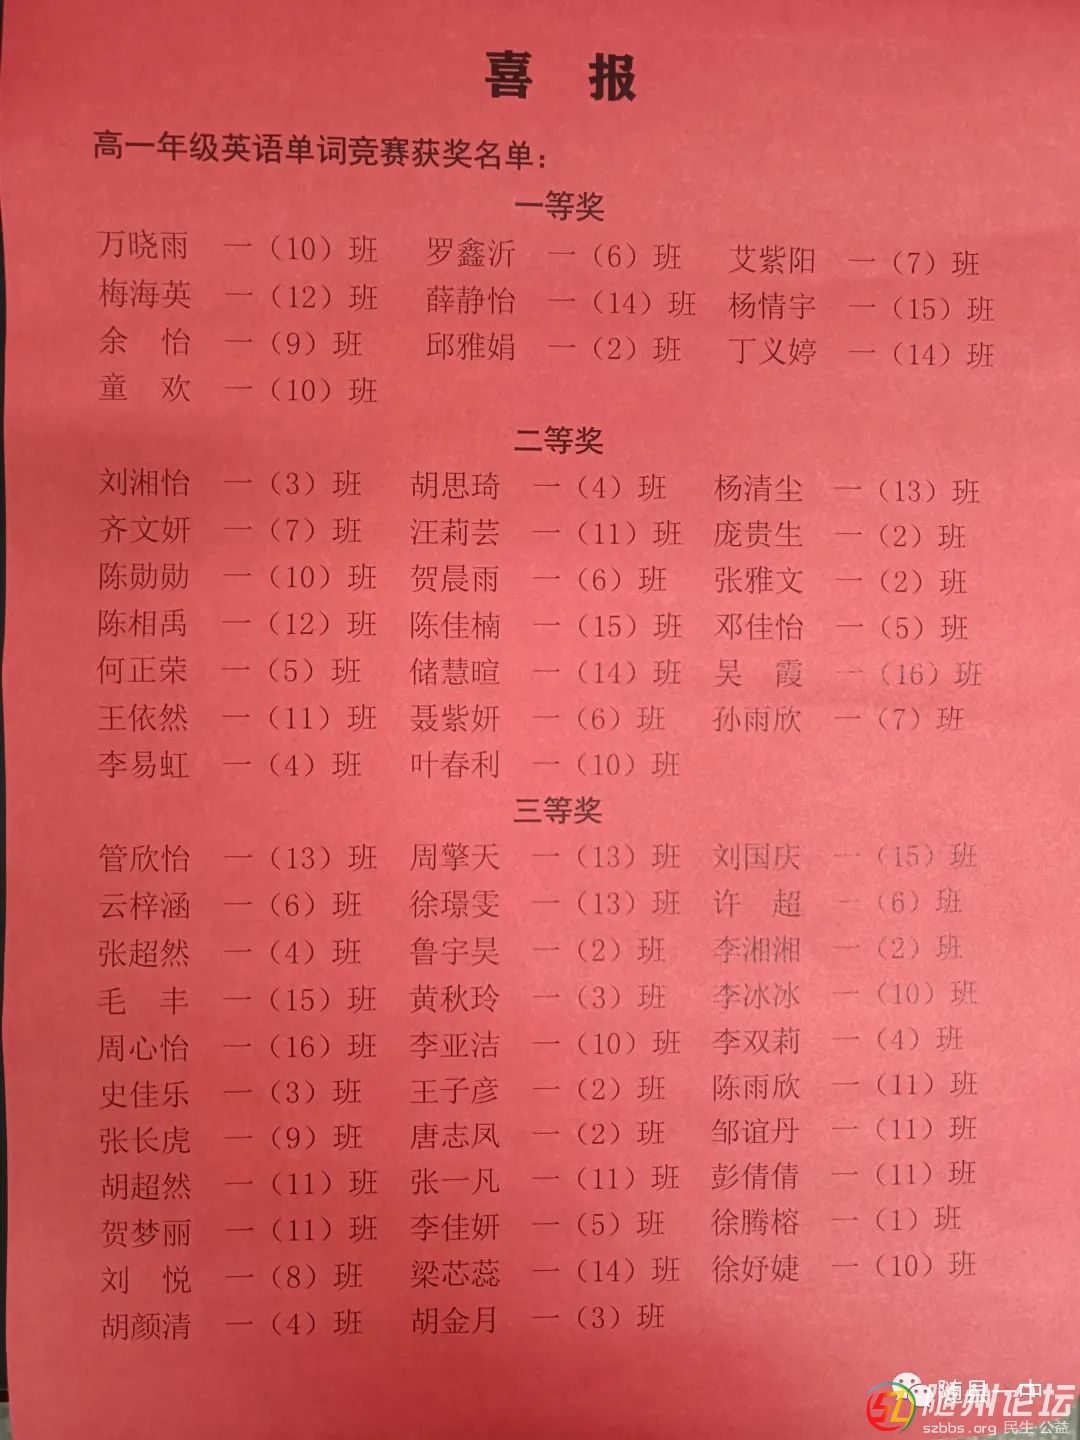 喜 报
高一年级英语单词竞赛获奖名单：
一等奖
万晓雨 一（10）班 罗鑫沂 一（6）班 艾紫阳 一（7）班
梅海英 一（12）班 薛静怡 一（14）班 杨情宇 一（15）班
余 怡 一（9）班 邱雅娟 一（2）班 丁义婷 一（14）班
童 欢 一（10）班
二等奖
刘湘怡 一（3）班 胡思琦 一（4）班 杨清尘 一（13）班
齐文妍 一（7）班 汪莉芸 一（11）班 庞贵生 一（2）班
陈勋勋 一（10）班 贺晨雨 一（6）班 张雅文 一（2）班
陈相禹 一（12）班 陈佳楠 一（15）班 邓佳怡 一（5）班
何正荣 一（5）班 储慧暄 一（14）班 吴 霞 一（16）班
王依然 一（11）班 聂紫妍 一（6）班 孙雨欣 一（7）班
李易虹 一（4）班 叶春利 一（10）班
三等奖
管欣怡 一（13）班 周擎天 一（13）班 刘国庆 一（15）班
云梓涵 一（6）班 徐璟雯 一（13）班 许 超 一（6）班
张超然 一（4）班 鲁宇昊 一（2）班 李湘湘 一（2）班
毛 丰 一（15）班 黄秋玲 一（3）班 李冰冰 一（10）班
周心怡 一（16）班 李亚洁 一（10）班 李双莉 一（4）班
史佳乐 一（3）班 王子彦 一（2）班 陈雨欣 一（11）班
张长虎 一（9）班 唐志凤 一（2）班 邹谊丹 一（11）班
胡超然 一（11）班 张一凡 一（11）班 彭倩倩 一（11）班
贺梦丽 一（11）班 李佳妍 一（5）班 徐腾榕 一（1）班
刘 悦 一（8）班 梁芯蕊 一（14）班 徐妤婕 一（10）班
胡颜清 一（4）班 胡金月 一（3）班
随州论坛
szbbs.org 民生·公益